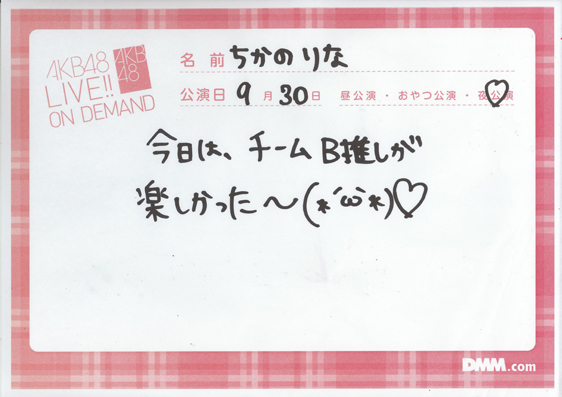 AKB48
LIVE!!
ON DEMAND
AKB
48
名前 ちかのりな
公演日 9月30日 昼公演・おやつ公演・夜公演
今日は、チームB推しが
楽しかった〜(*´ω`*)♡
DMM.com